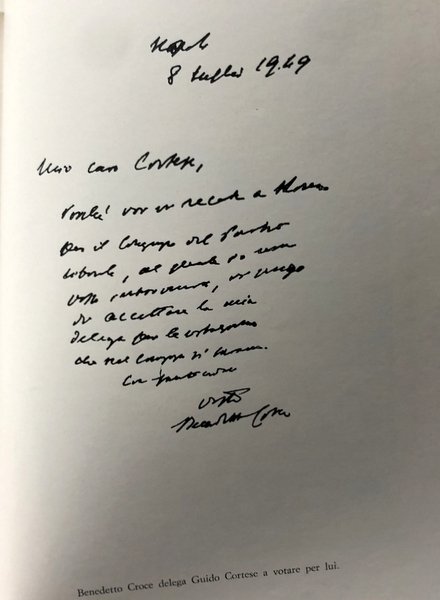 Napoli
8 luglio 1949
Mio caro Cortese,
Poiché voi vi recate a Roma
per il Congresso del Partito
liberale, al quale io non
, vi prego
di accettare la mia
delega per le votazioni
che nel congresso si faranno.
Con
vostro
Benedetto Croce
Benedetto Croce delega Guido Cortese a votare per lui.